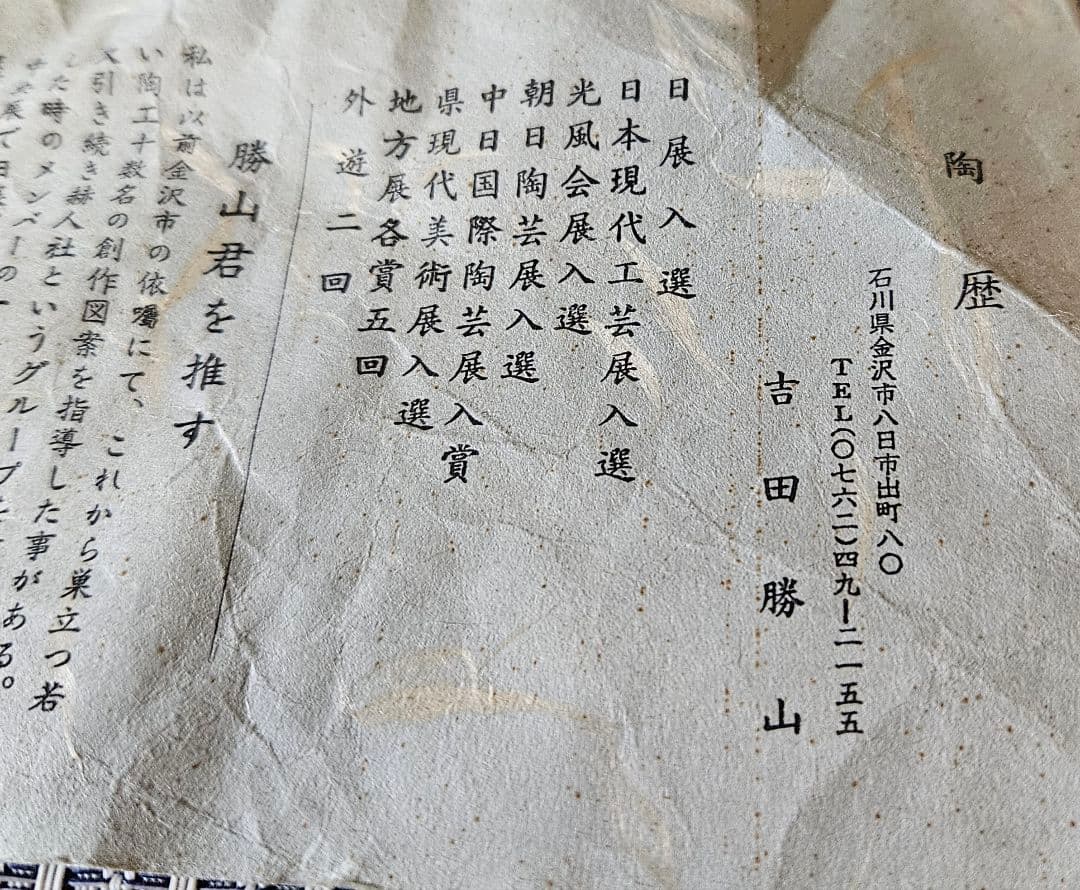 陶歴
石川県金沢市八日市出町八〇
TEL(〇七六二)四九ー二一五五
吉田勝山
日展入選
日本現代工芸展入選
光風会展入選
朝日陶芸展入選
中日国際陶芸展入賞
県現代美術展入選
地方展各賞五回
外遊二回
勝山君を推す
私は以前金沢市の依嘱にて、これから巣立つ若
い陶工十数名の創作図案を指導した事がある。
引き続き赫人社というグループ
た時のメンバーの一